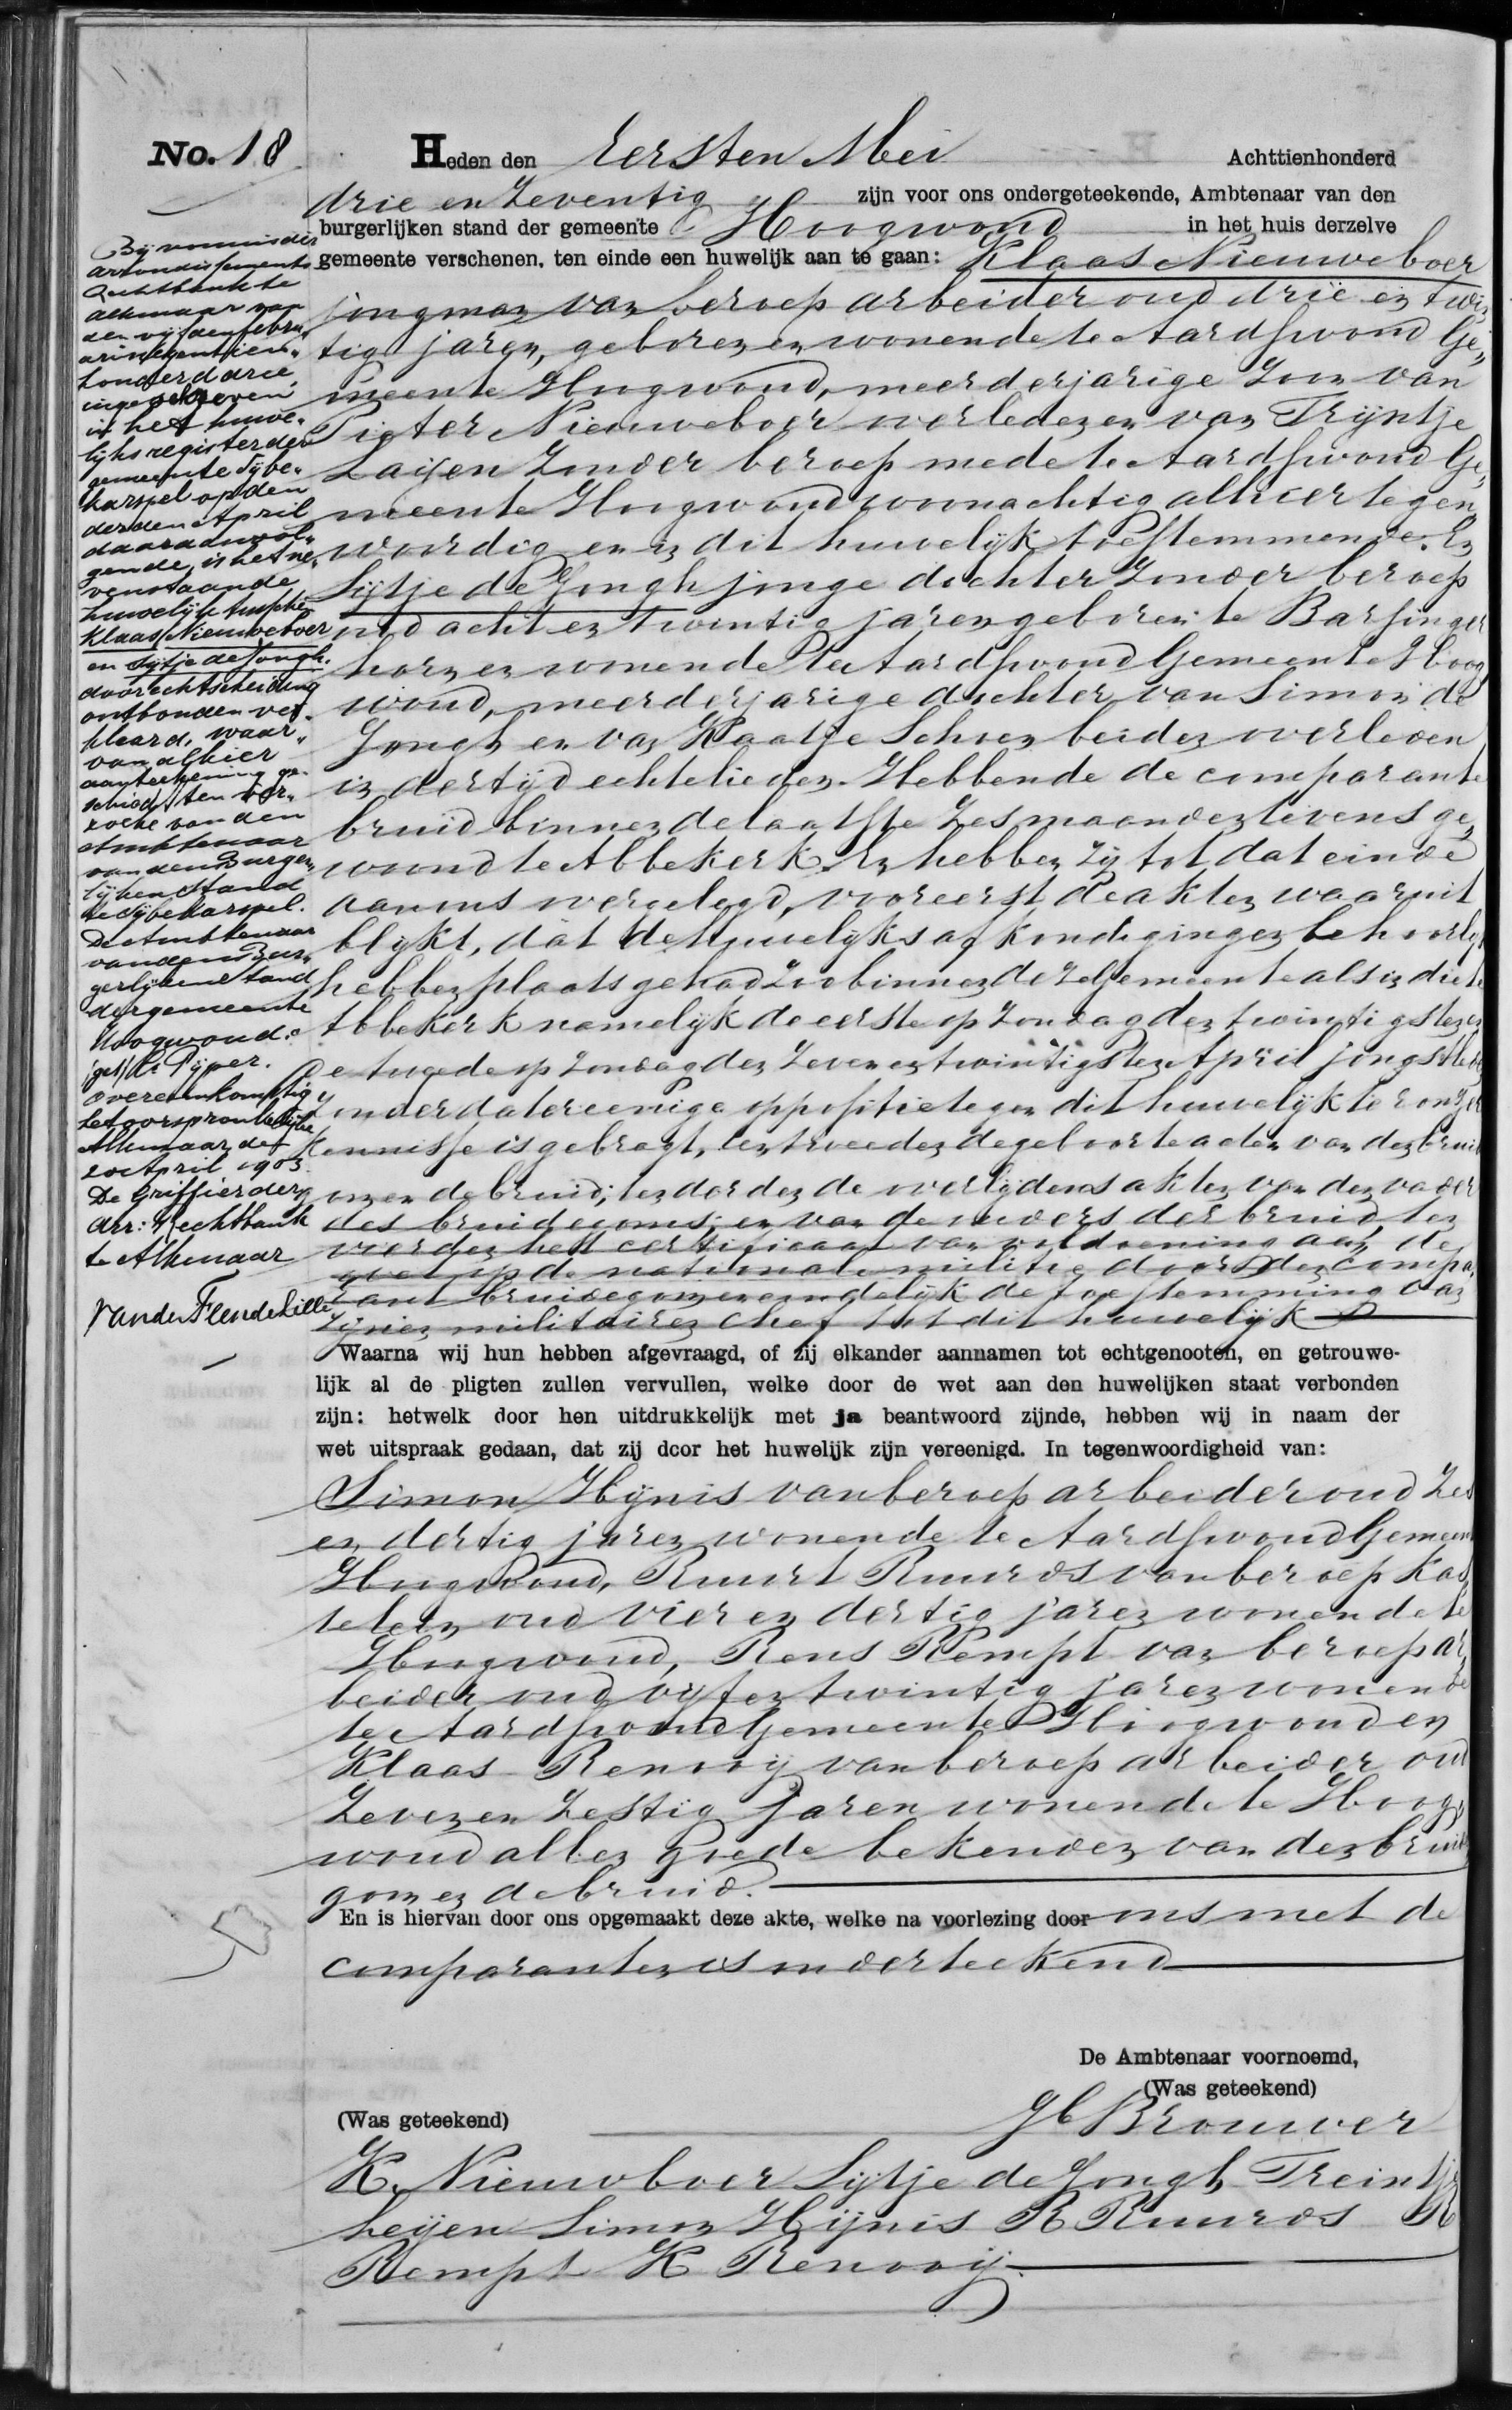 No. 18
Heden den Eersten Mei Achttienhonderd
drie en Zeventig zijn voor ons ondergeteekende, Ambtenaar van den
burgerlijken stand der gemeente Hoogwoud in het huis derzelve
gemeente verschenen, ten einde een huwelijk aan te gaan: Klaas Nieuweboer
jongman van beroep arbeider oud drie en twin„
tig jaren, geboren en wonende te Aardswoud Ge„
meente Hoogwoud, meerderjarige Zoon van
Pieter Nieuweboer overleden en van Trijntje
Laijen Zonder beroep mede te Aardswoud Ge„
meente Hoogwoud woonachtig alhier tegen„
woordig en in dit huwelijk toestemmende. En
Sijtje de Jongh jonge dochter Zonder beroep
oud acht en twintig jaren geboren te Barsinger
horn en wonende te Aardswoud Gemeente Hoog
woud, meerderjarige dochter van Simon de
Jongh en van Klaatje Schoen beiden overleden
in der tijd echtelieden. Hebbende de comparante
bruid binnen de laatste Zes maanden tevens ge„
woond te Abbekerk. En hebben Zij tot dat einde
aan ons overgelegd, vooreerst de akten waaruit
blijkt, dat de Huwelijks afkondigingen behoorlijk
hebben plaats gehad Zoo binnen deze Gemeente als in die te
Abbekerk namelijk de eerste op Zondag den twintigsten en
de tweede op Zondag den Zeven en twintigsten April jongstleden
Zonder dat er eenige oppositie tegen dit huwelijk ter onzer
kennisse is gebragt, ten tweeden de geboorte acten van den bruide
gom en de bruid; ten derden de overlijdens akten van den vader
des bruidegoms, en van de ouders der bruid, ten
vierden het certificaat van voldoening aan de
wet op de nationale militie door den compa„
rant bruidegom en eindelijk de toestemming van
Zijnen militairen Chef tot dit huwelijk
Waarna wij hun hebben afgevraagd, of zij elkander aannamen tot echtgenooten, en getrouwe-
lijk al de pligten zullen vervullen, welke door de wet aan den huwelijken staat verbonden
zijn: hetwelk door hen uitdrukkelijk met ja beantwoord zijnde, hebben wij in naam der
wet uitspraak gedaan, dat zij door het huwelijk zijn vereenigd. In tegenwoordigheid van:
Simon Hijnis van beroep arbeider oud Zes
en dertig jaren wonende te Aardswoud Gemeente
Hoogwoud, Ruurt Ruurds van beroep Kas„
telein oud vier en dertig jaren wonende te
Hoogwoud, Rens Rempt van beroep ar„
beider oud vijf en twintig jaren wonende
te Aardswoud Gemeente Hoogwoud en
Klaas Renooij van beroep arbeider oud
Zeven en Zestig jaren wonende te Hoog„
woud allen goede bekenden van den bruide
gom en de bruid.
En is hiervan door ons opgemaakt deze akte, welke na voorlezing door ons met de
comparanten is onderteekend
De Ambtenaar voornoemd,
(Was geteekend)
(Was geteekend)
Brouwer
K. Nieuwboer Sijtje de Jongh Treintje
Leijen Simon Hijnis R Ruurds R
Rempt K Renooij
Bij vonnis der
arrondissements
Rechtbank te
Alkmaar van
den vijfden febru„
ari negentien„
honderd drie
ingeschreven
in het huwe„
lijks register der
gemeente Sijbe„
karspel op den
derden April
daaraanvol„
gende, is het ne„
venstaande
huwelijk tusschen
Klaas Nieuweboer
en Sijtje de Jongh.
door echtscheiding
ontbonden ver„
klaard, waar„
van alhier
aanteekening ge„
schiedt ten ver„
zoeke van den
Ambtenaar
van den Burger„
lijken Stand
te Sijbekarspel.
De Ambtenaar
van den Bur„
gerlijken Stand
der gemeente
Hoogwoud.
(get) C. Pijper.
Overeenkomstig
het oorspronkelijke
Alkmaar, den
April 1903
De Griffier der
Arr: Rechtbank
te Alkmaar